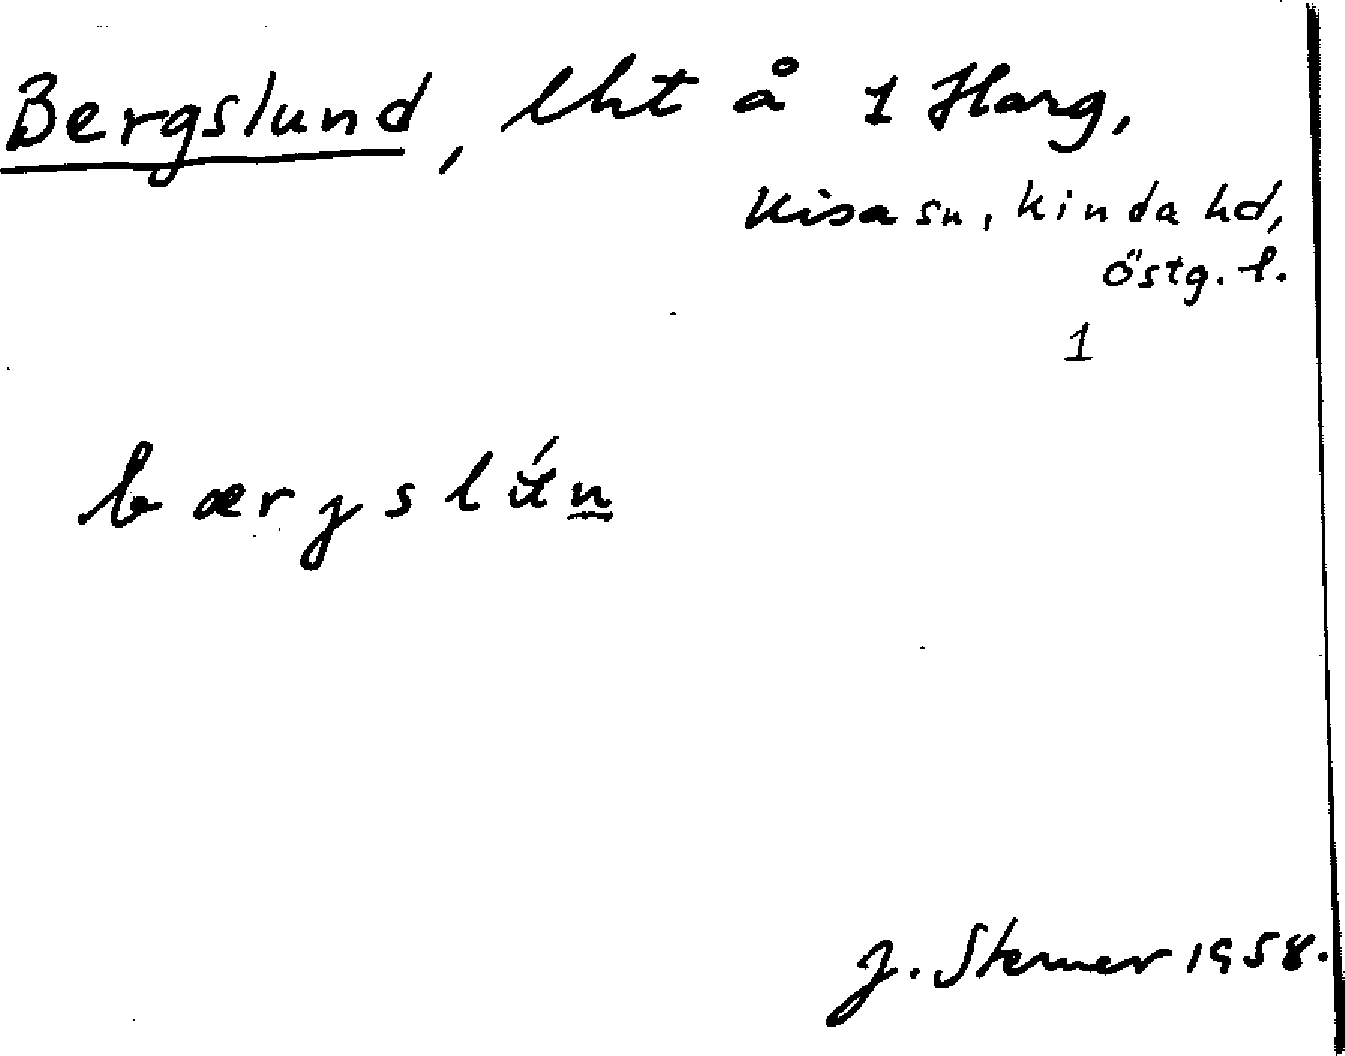 Bergslund, lht å 1 Harg,
Kisa sn, Kinda hd,
Östg. l.
1
bærgslún
J. Sterner 1958.